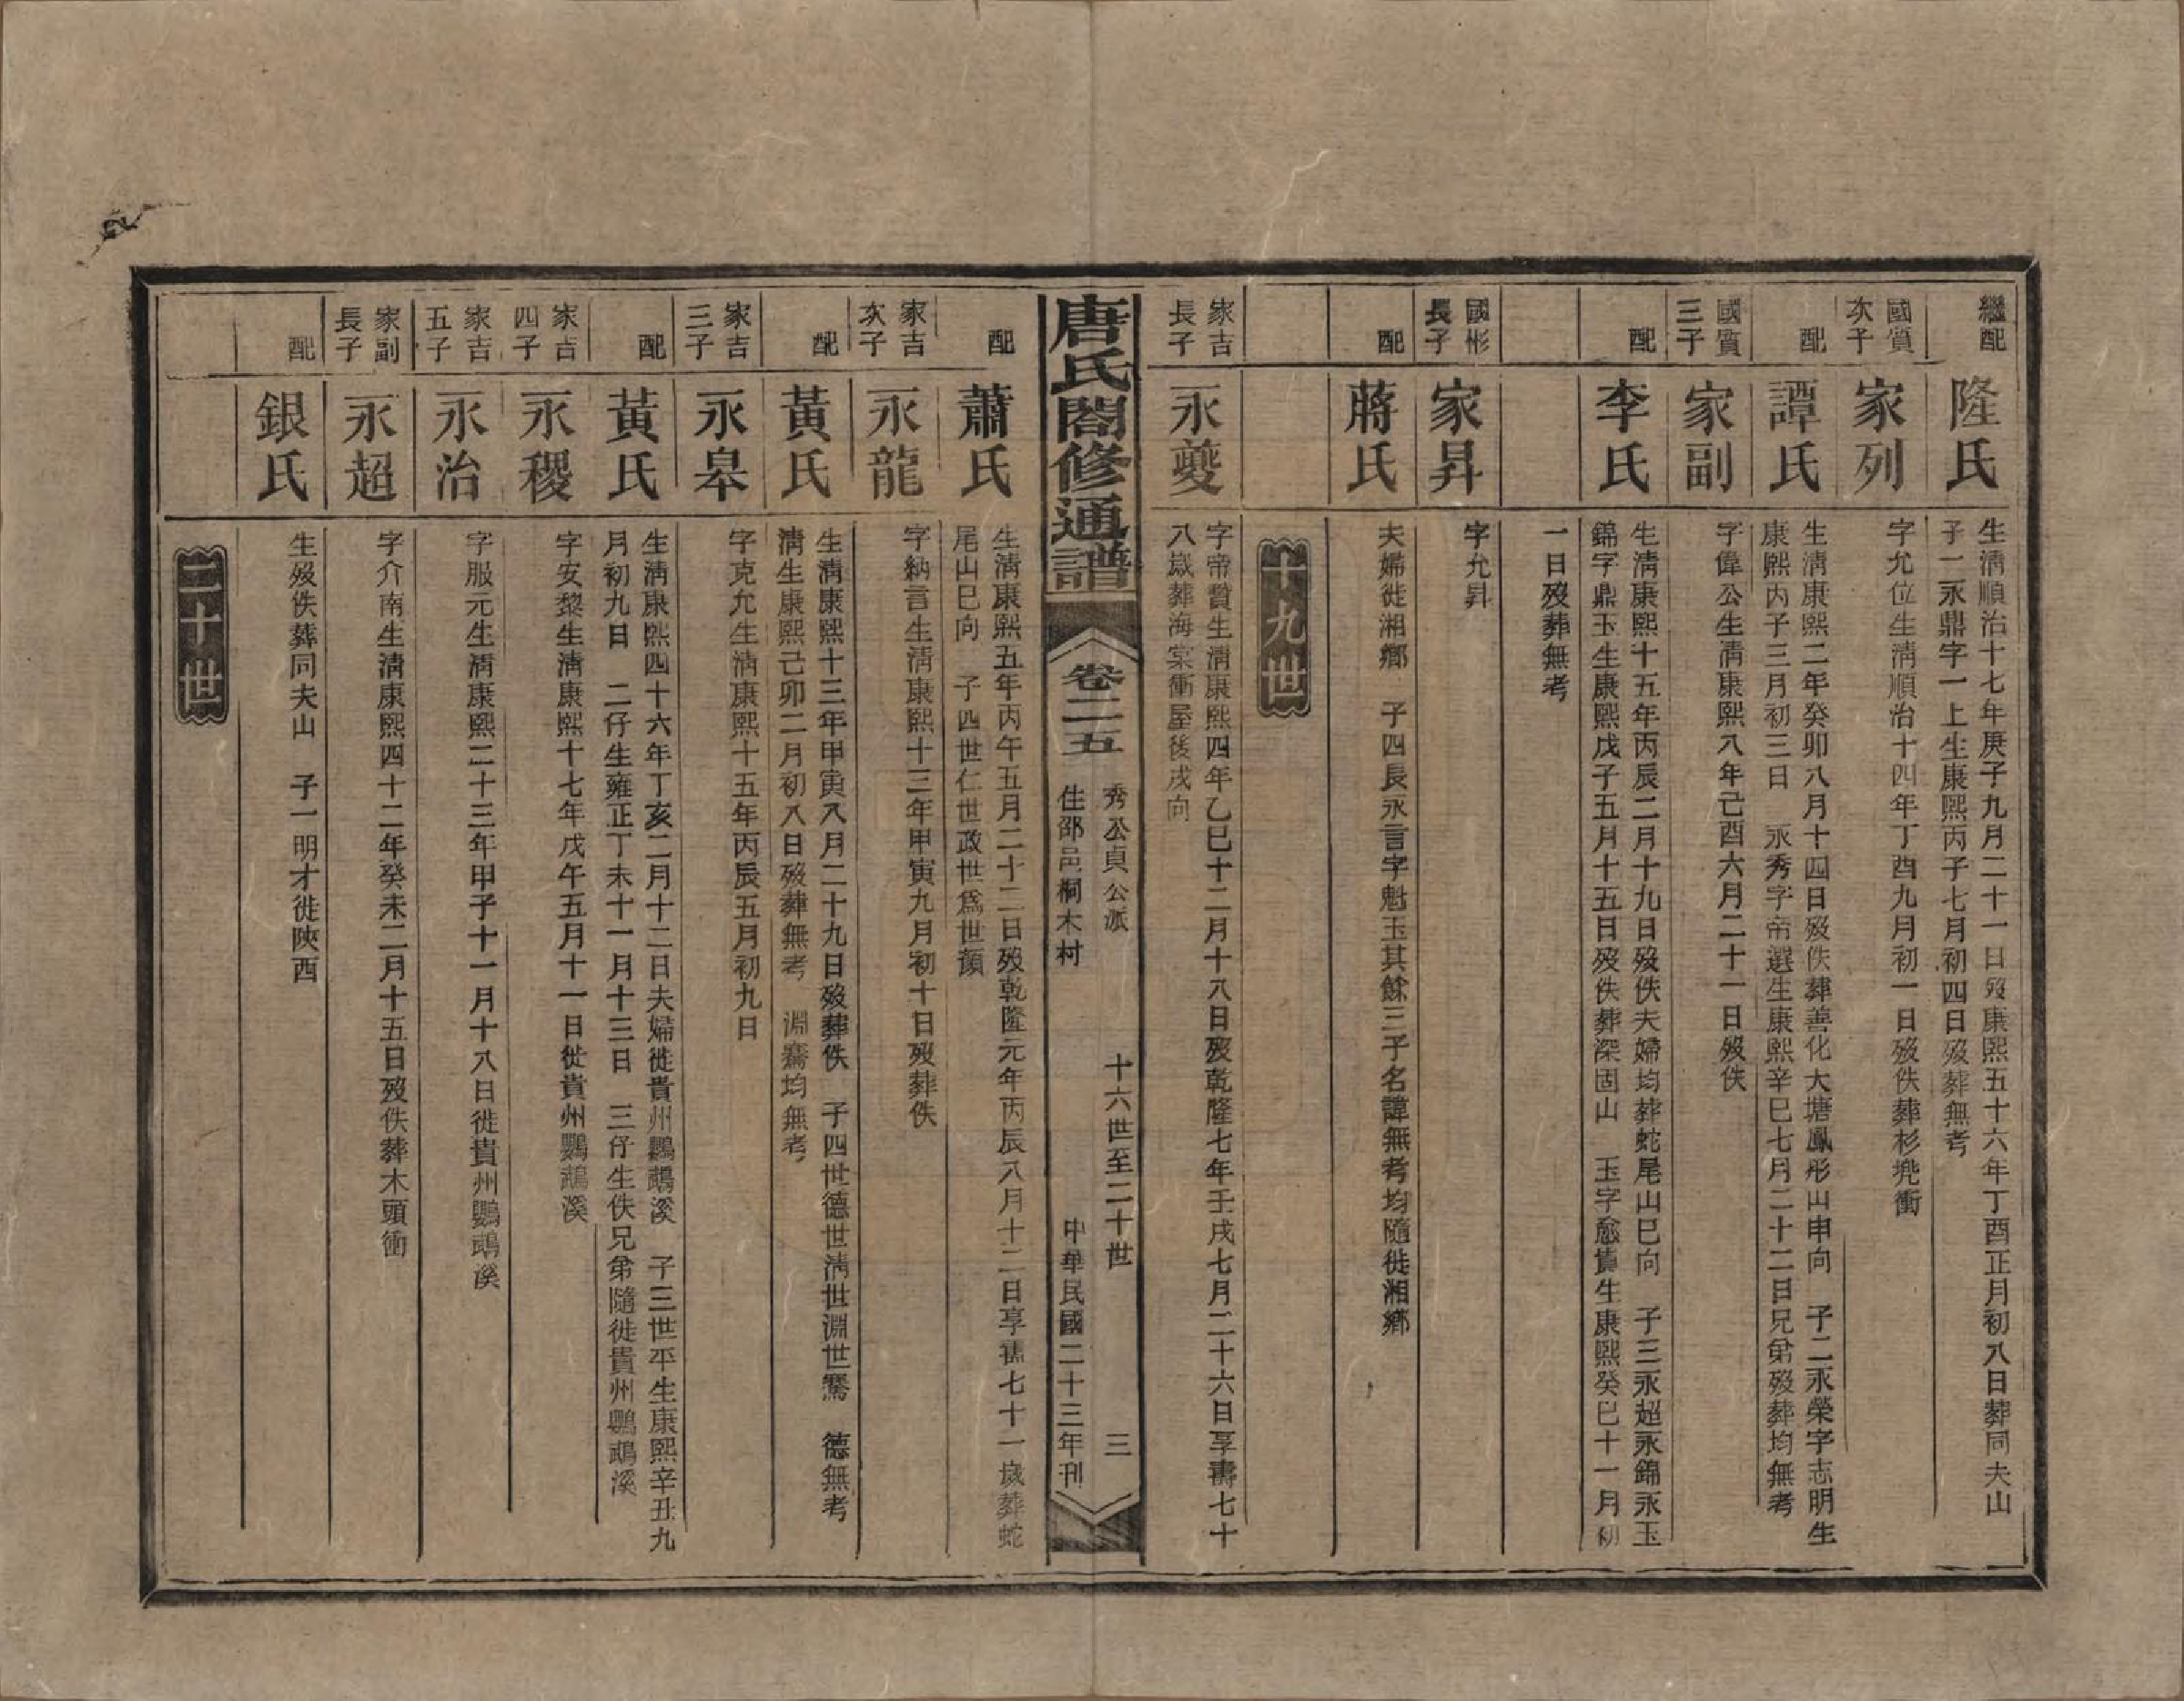 繼配
隆氏
生淸順治十七年庚子九月二十一日歿康熙五十六年丁酉正月初八日葬同夫山
子一永鼎字一上生康熙丙子七月初四日歿葬無考
國質
次子
家列
字允位生淸順治十四年丁酉九月初一日歿佚葬杉兠衝
配
譚氏
生淸康熙二年癸卯八月十四日歿佚葬善化大塘鳳形山申向　子二永榮字志明生
康熙丙子三月初三日　永秀字帝選生康熙辛巳七月二十二日兄弟歿葬均無考
國質
三子
家副
字偉公生淸康熙八年己酉六月二十一日歿佚
配
李氏
生淸康熙十五年丙辰二月十九日歿佚夫婦均葬蛇尾山巳向　子三永超永錦永玉
錦字鼎玉生康熙戊子五月十五日歿佚葬深固山　玉字愈貴生康熙癸巳十一月初
一日歿葬無考
國彬
長子
家昇
字允昇
配
蔣氏
夫婦徙湘鄉　子四長永言字魁玉其餘三子名諱無考均隨徙湘鄉
十九世
家吉
長子
永夔
字帝賛生淸康熙四年乙巳十二月十八日歿乾隆七年壬戌七月二十六日享壽七十
八歲葬海棠衝屋後戌向
唐氏閤修通譜
卷二五
秀公貞公派
住邵邑桐木村
十六世至二十世
三
中華民國二十三年刊
配
蕭氏
生淸康熙五年丙午五月二十二日歿乾隆元年丙辰八月十二日享壽七十一歲葬蛇
尾山巳向　子四世仁世政世爲世顏
家吉
次子
永龍
字納言生淸康熙十三年甲寅九月初十日歿葬佚
配
黃氏
生淸康熙十三年甲寅八月二十九日歿葬佚　子四世德世淸世淵世騫　德無考
淸生康熙己卯二月初八日歿葬無考　淵騫均無考
家吉
三子
永皋
字克允生淸康熙十五年丙辰五月初九日
配
黃氏
生淸康熙四十六年丁亥二月十二日夫婦徙貴州鸚鵡溪　子三世平生康熙辛丑九
月初九日　二仔生雍正丁未十一月十三日　三仔生佚兄弟隨徙貴州鸚鵡溪
家吉
四子
永稷
字安黎生淸康熙十七年戊午五月十一日徙貴州鸚鵡溪
家吉
五子
永治
字服元生淸康熙二十三年甲子十一月十八日徙貴州鸚鵡溪
家副
長子
永超
字介南生淸康熙四十二年癸未二月十五日歿佚葬木頭衝
配
銀氏
生歿佚葬同夫山　子一明才徙陝西
二十世